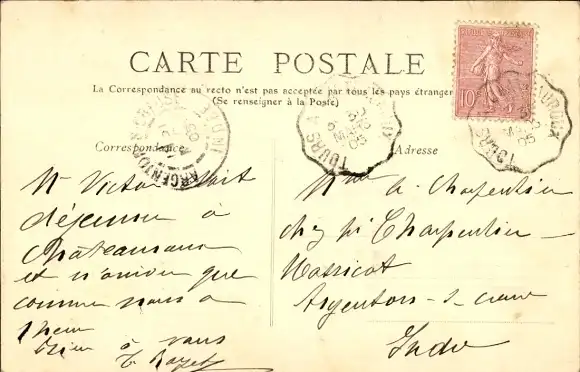 CARTE POSTALE
La Correspondance au recto n'est pas acceptée par tous les pays étrangers
(Se renseigner à la Poste)
Correspondance
Adresse
10
TOURS A CHATEAUROUX
ARGENTON S CREUSE
INDRE
Mr Victor doit
déjeuner à
Châteauroux
et n'arriver que
comme nous à
1 heure
bien à vous
Mme A. Charpentier
chez Mr Charpentier
Argenton-s-creuse
Indre